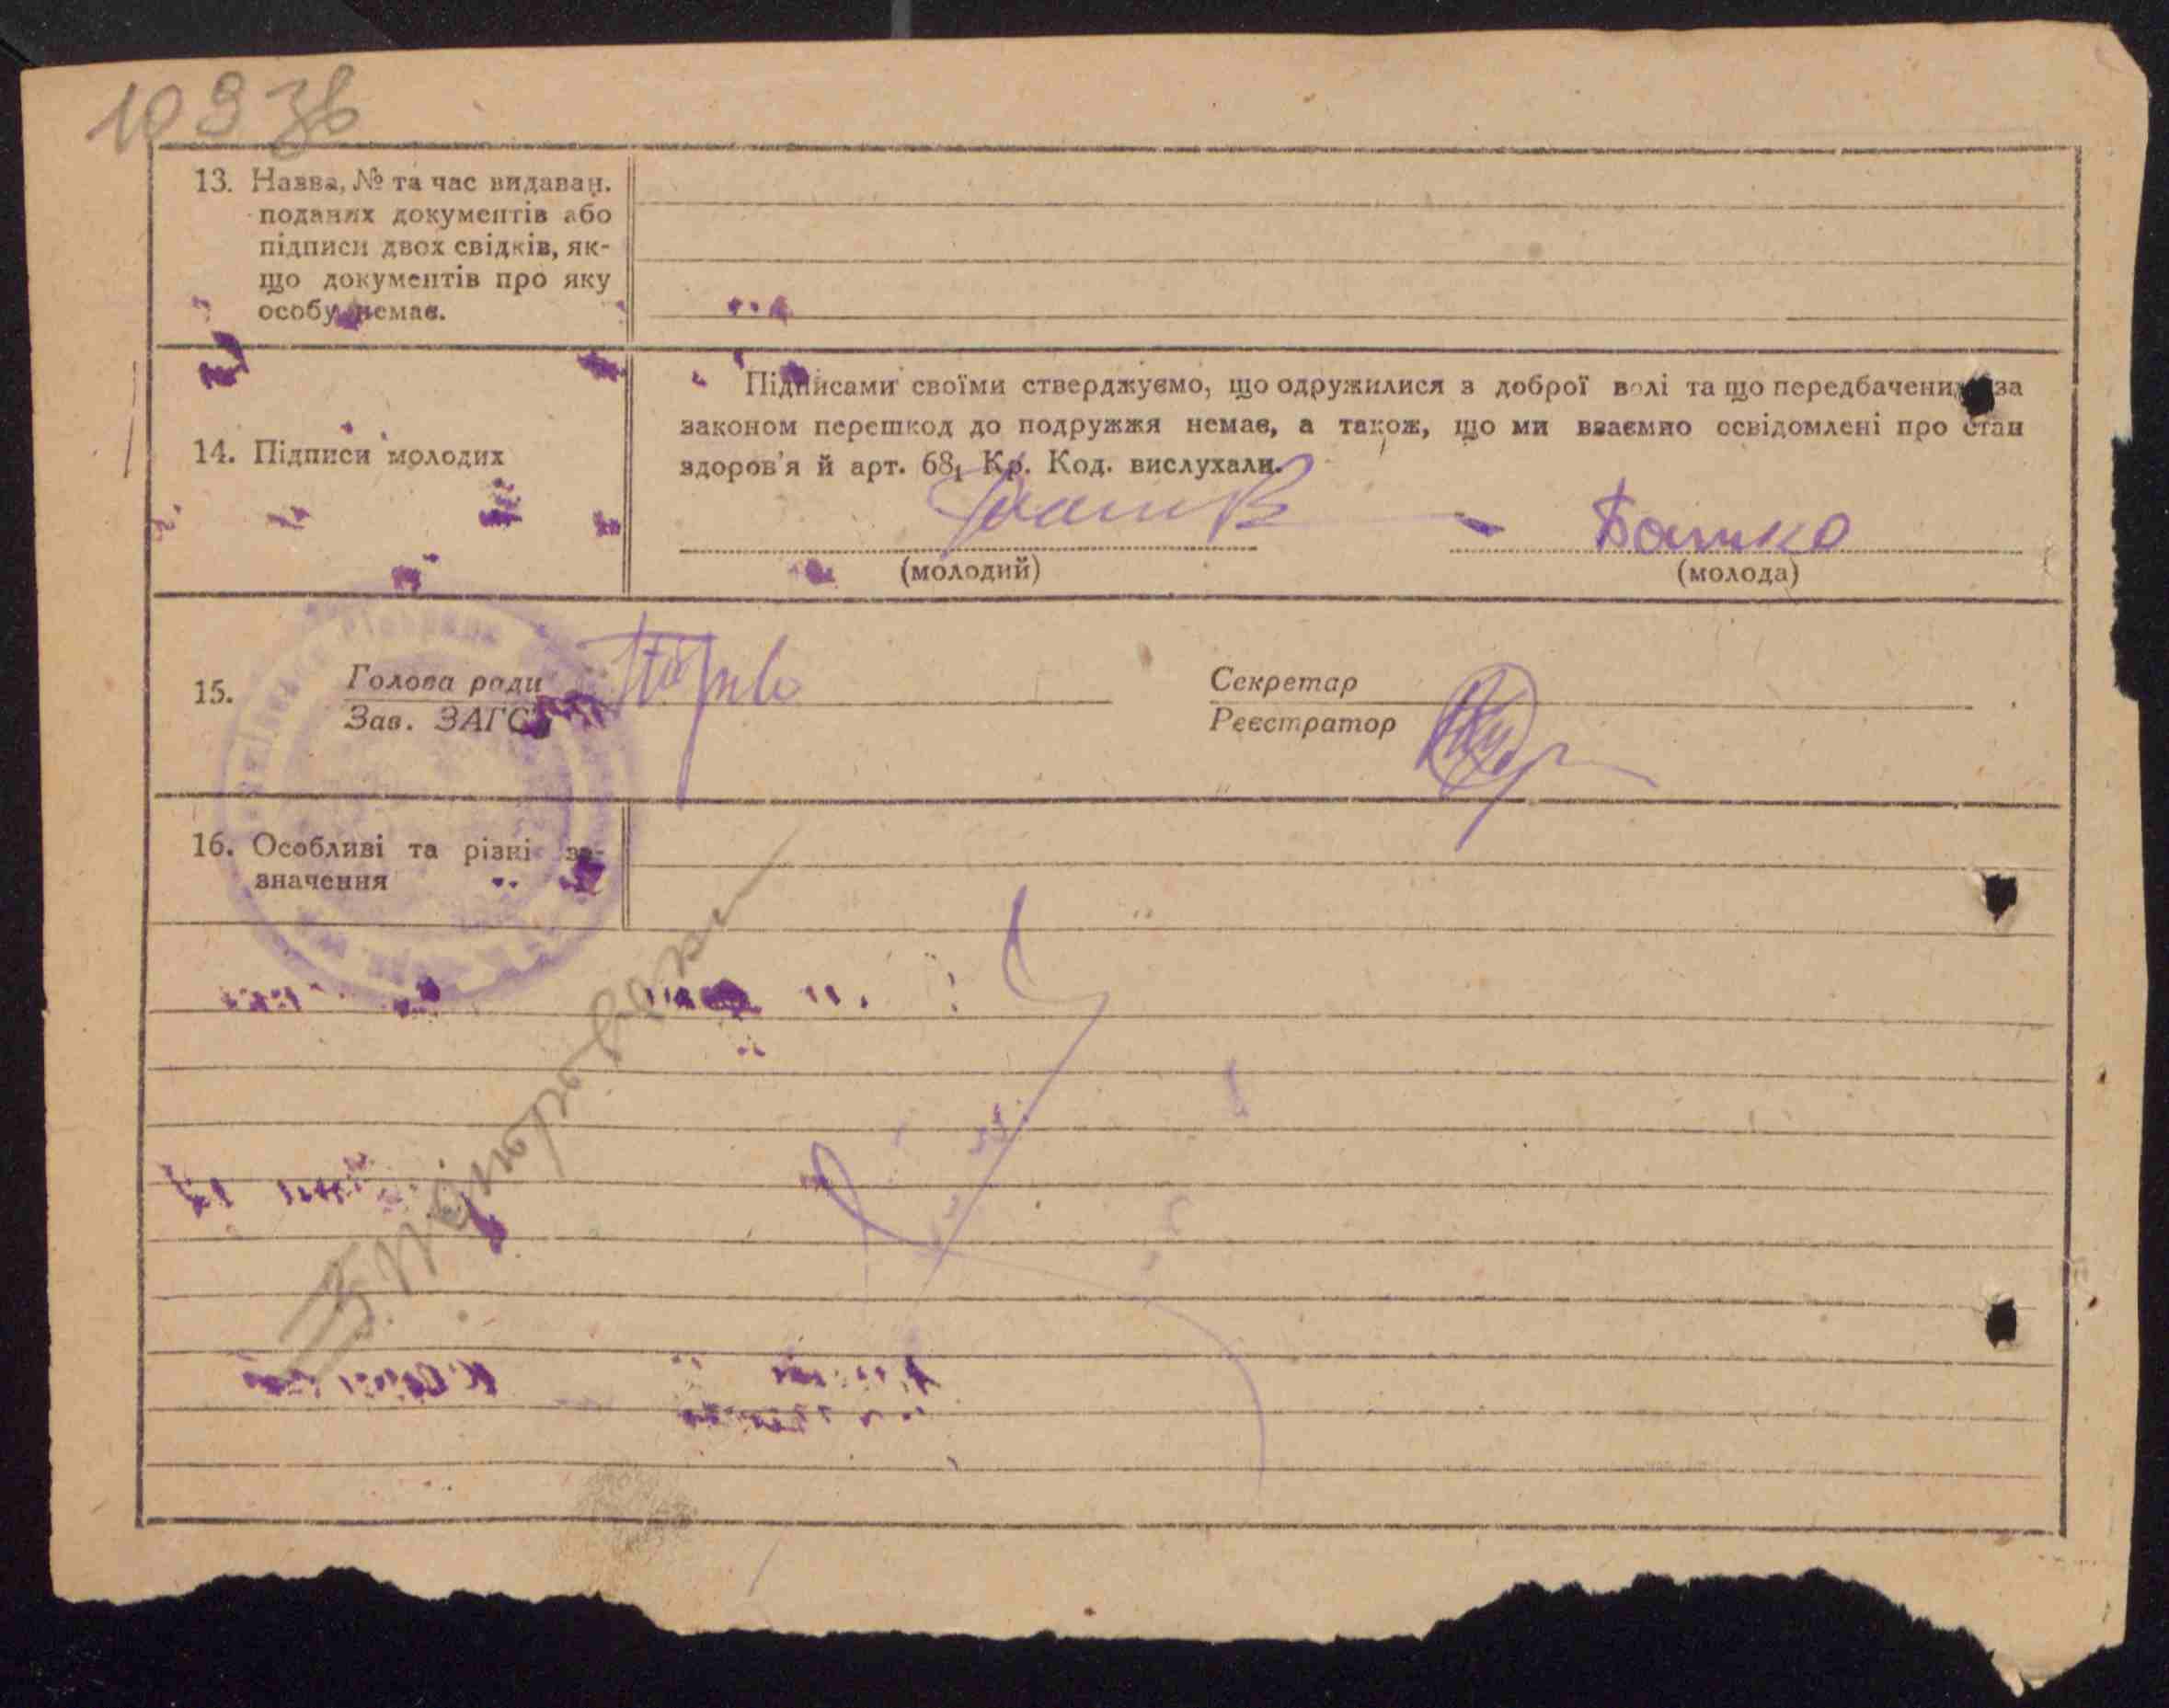 109 зв
13. Назва, № та час видаван.
поданих документів або
підписи двох свідків, як-
що документів про яку
особу немає.
14. Підписи молодих
Підписами своїми стверджуємо, що одружилися з доброї волі та що передбачених за
законом перешкод до подружжя немає, а також, що ми взаємно освідомлені про стан
здоров'я й арт. 68₁ Кр. Код. вислухали.
Башко
(молодий) (молода)
15. Голова ради Секретар
Зав. ЗАГС Реєстратор
16. Особливі та різні за-
значення